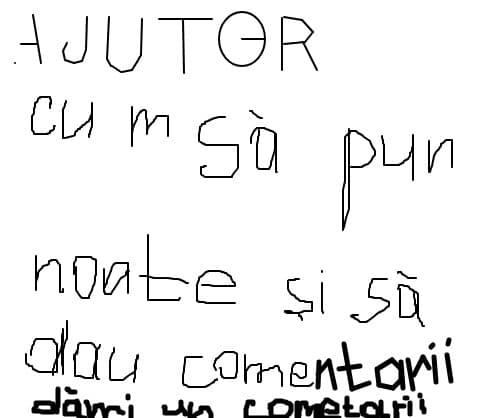 AJUTOR
cum să pun
noate și să
dau comentarii
dămi un cometarii